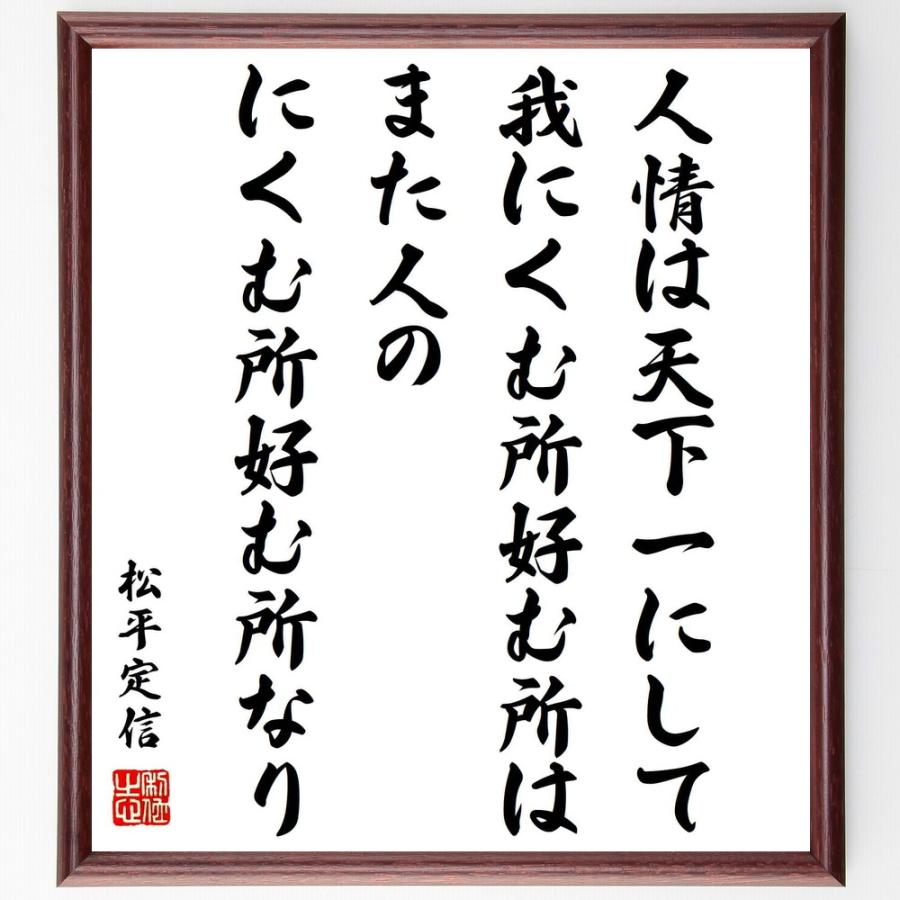 人情は天下一にして
我にくむ所好む所は
また人の
にくむ所好む所なり
松平定信